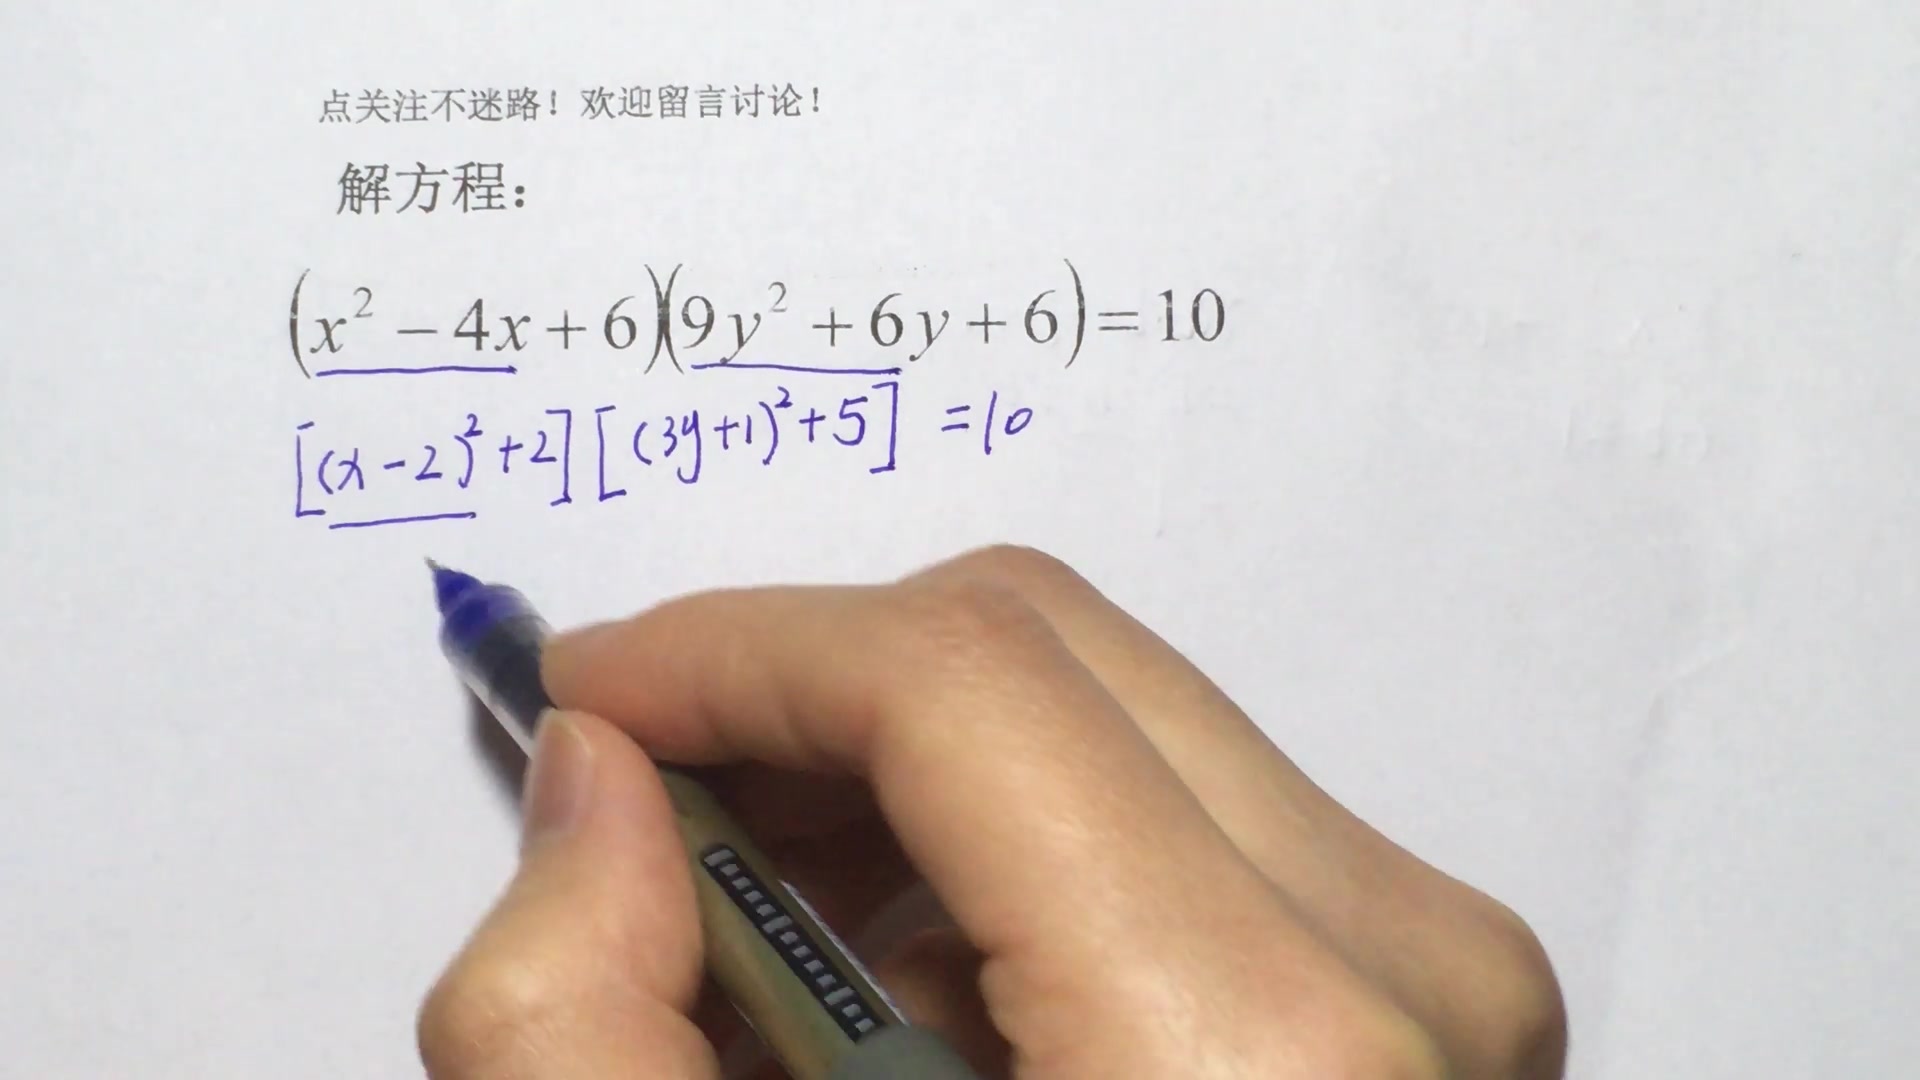 点关注不迷路！欢迎留言讨论！
解方程：
(x² − 4x + 6)(9y² + 6y + 6) = 10
[(x − 2)² + 2] [(3y + 1)² + 5] = 10